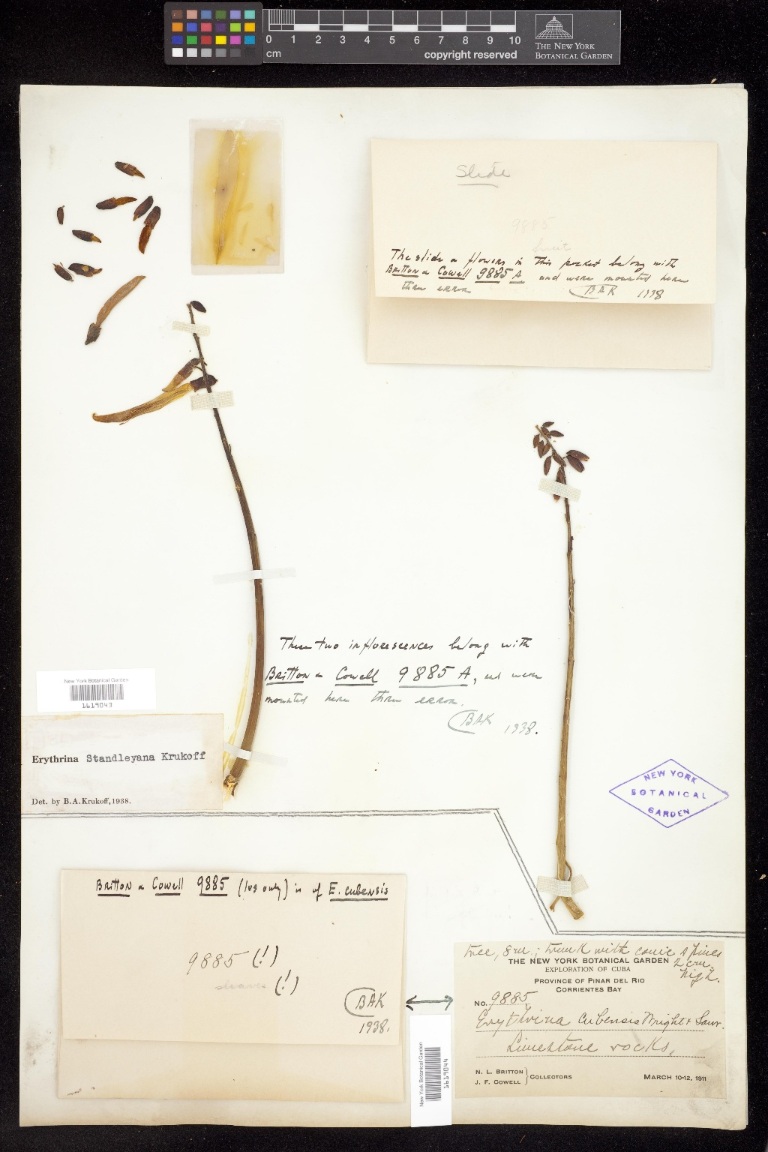 0 1 2 3 4 5 6 7 8 9 10
cm
copyright reserved
THE NEW YORK
BOTANICAL GARDEN
Slide
9885
The slide & flowers in this pocket belong with
Britton & Cowell 9885 A and were mounted here
thru error
BAK 1938
These two inflorescences belong with
Britton & Cowell 9885 A, and were
mounted here thru error.
BAK 1938.
New York Botanical Garden
1619043
Erythrina Standleyana Krukoff
Det. by B.A. Krukoff, 1938.
NEW YORK
BOTANICAL
GARDEN
Britton & Cowell 9885 (lvs only) is of E. cubensis
9885 (!)
(!)
BAK
1938.
New York Botanical Garden
1619044
tree, 8m; trunk with conic spines
2 cm high.
THE NEW YORK BOTANICAL GARDEN
EXPLORATION OF CUBA
PROVINCE OF PINAR DEL RIO
CORRIENTES BAY
No. 9885
Erythrina cubensis Wright & Sauv.
Limestone rocks,
N. L. BRITTON
J. F. COWELL
COLLECTORS
MARCH 10-12, 1911